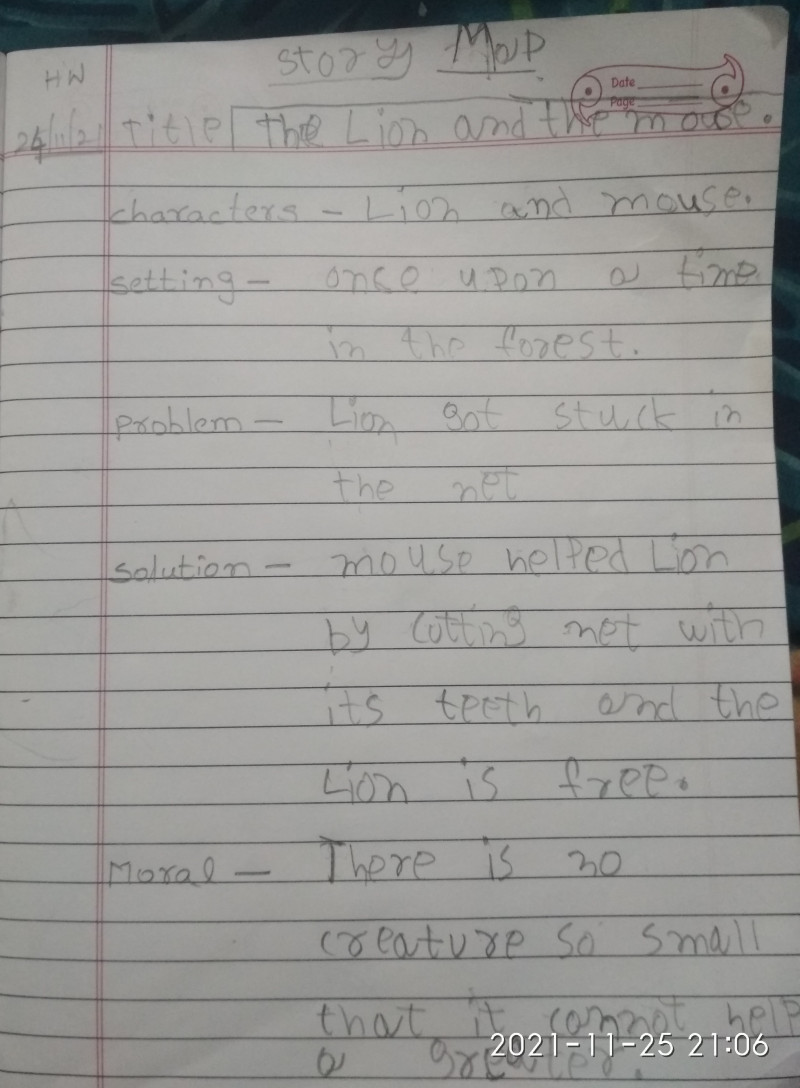 Story Map
HW
Date
Page
24/11/21 Title The Lion and the mouse.
characters - Lion and mouse.
setting - once upon a time
in the forest.
problem - Lion got stuck in
the net
solution - mouse helped Lion
by cutting net with
its teeth and the
Lion is free.
Moral - There is no
creature so small
that it cannot help
a greater.
2021-11-25 21:06